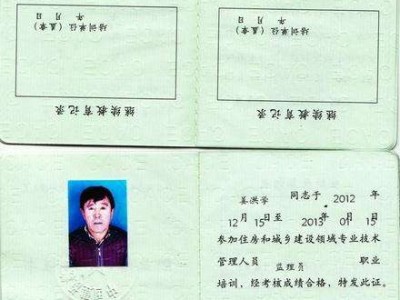 继续教育记录
培训单位(盖章)
年 月 日
继续教育记录
培训单位(盖章)
年 月 日
姜洪学 同志于 2012 年
12 月 15 日至 2013 01 15
参加住房和城乡建设领域专业技术
管理人员 监理员 职业
培训,经考核成绩合格,特发此证。